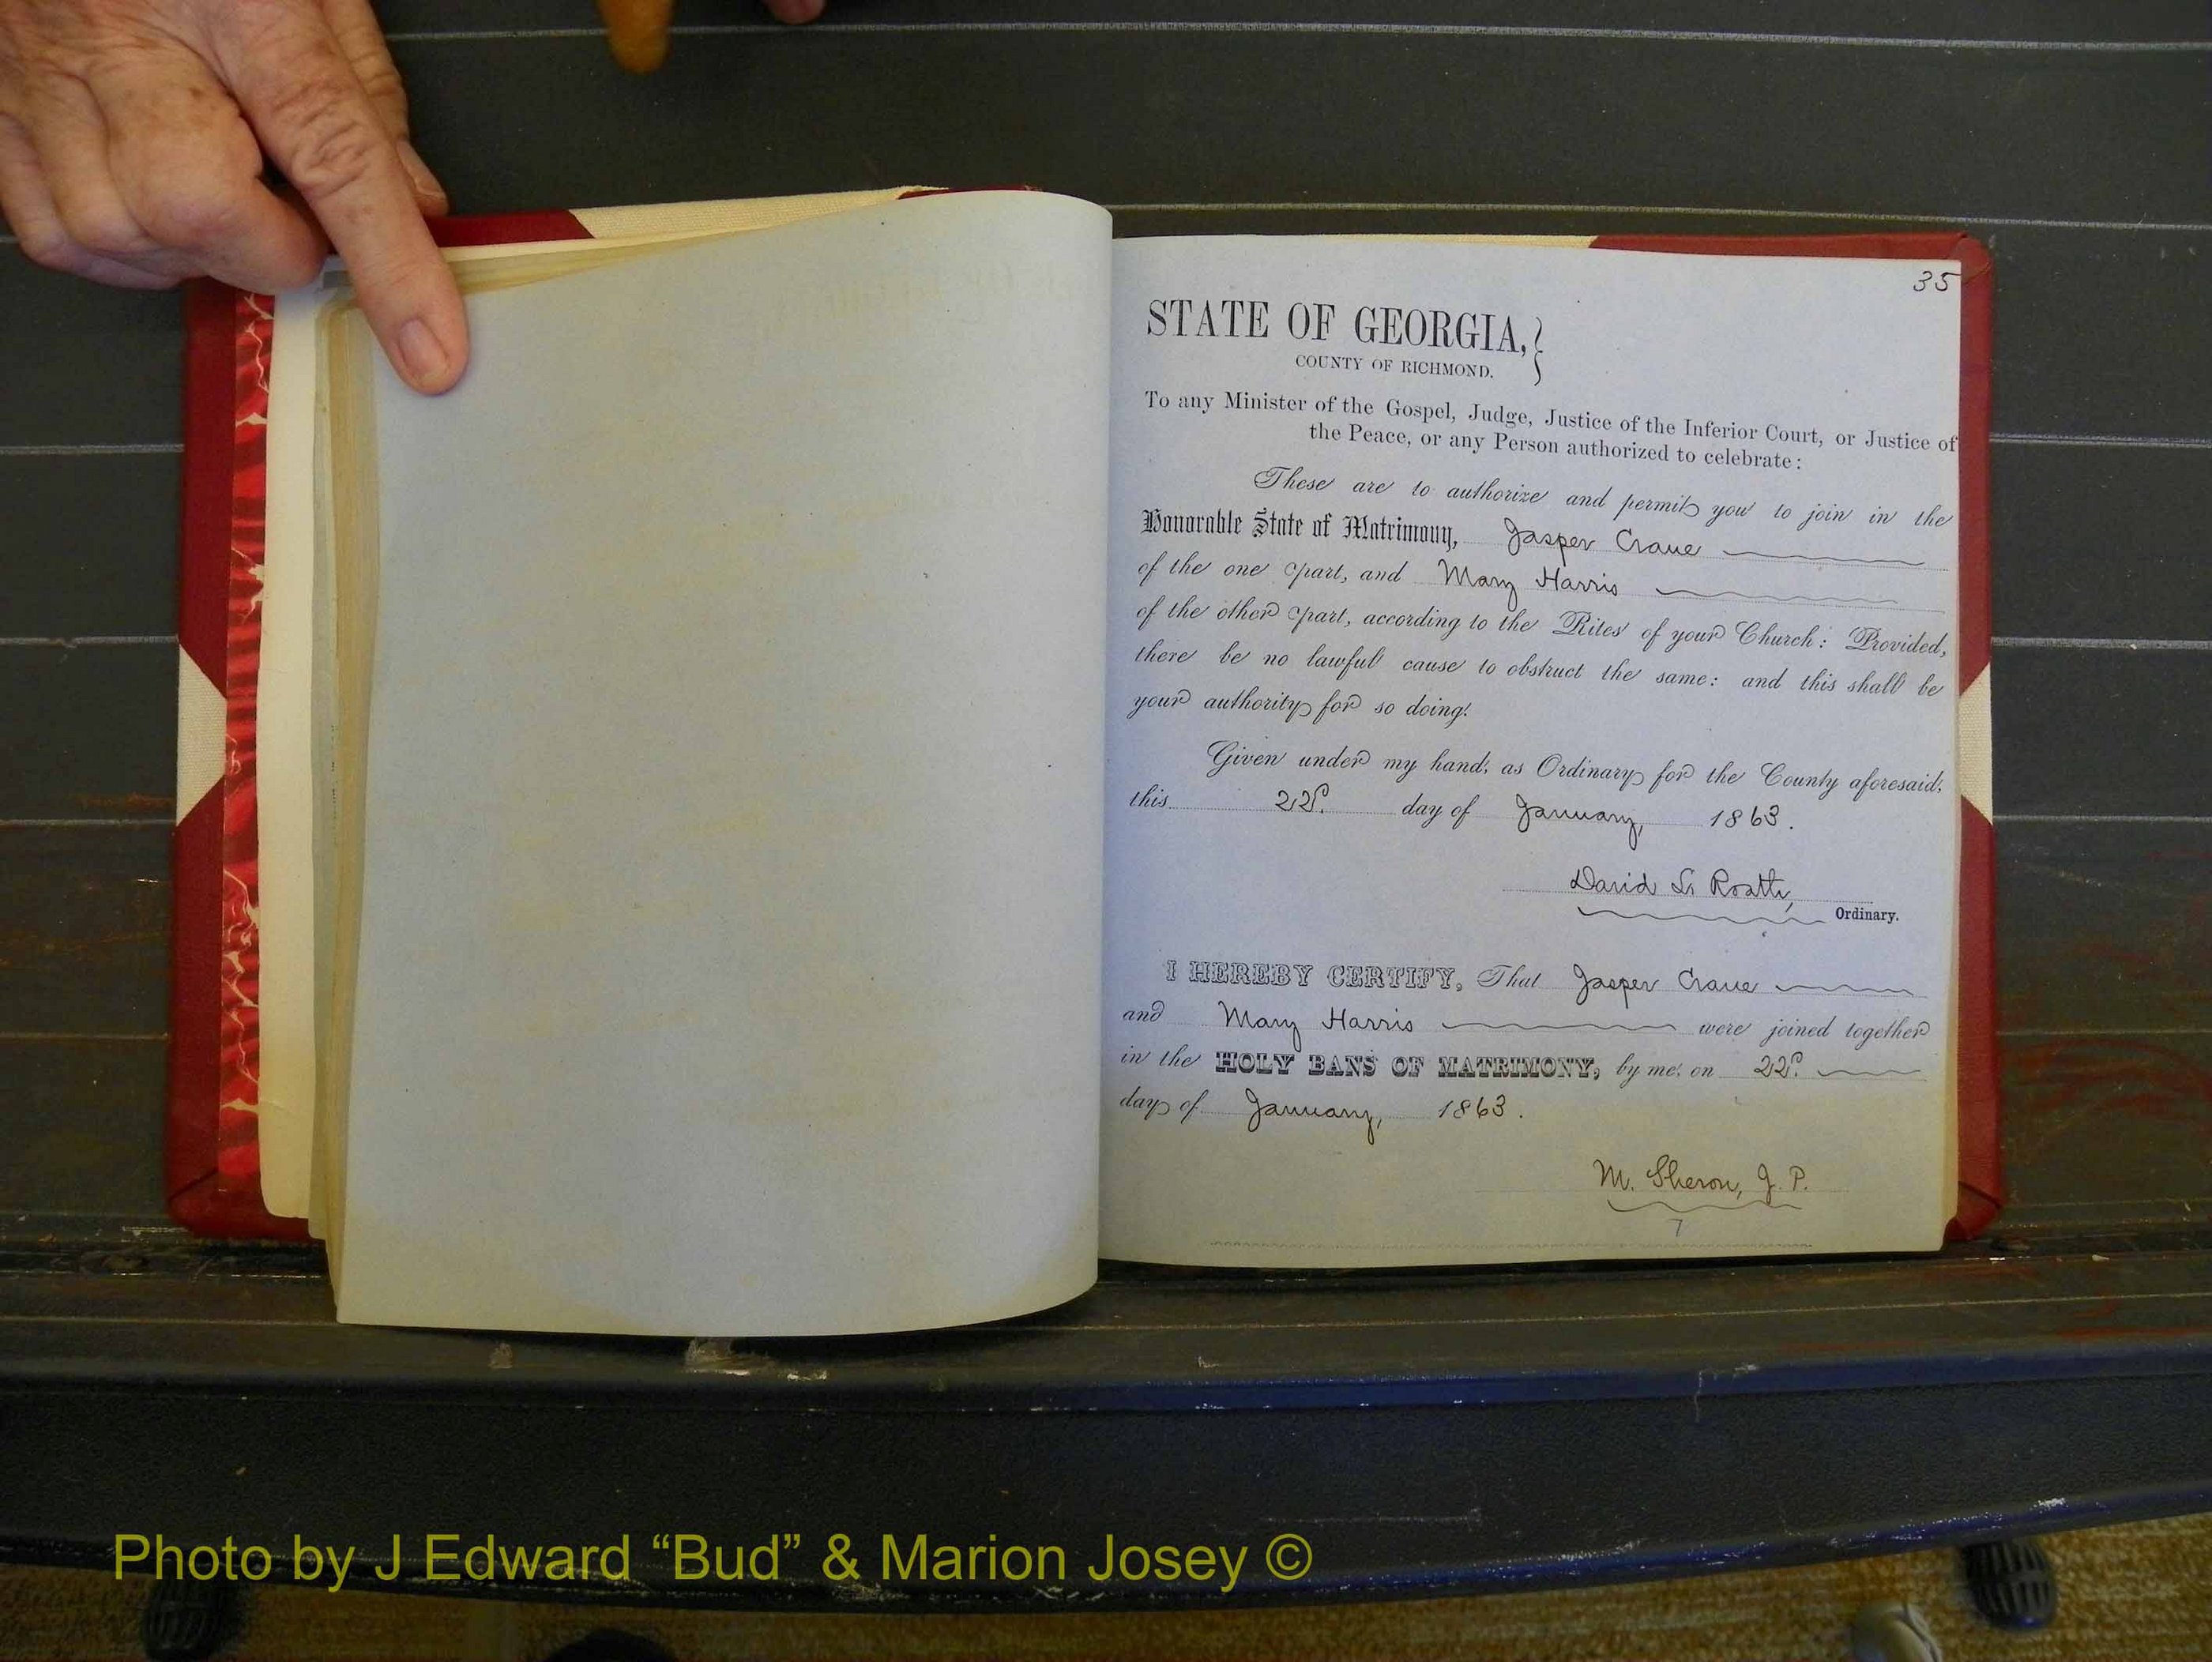 35
STATE OF GEORGIA,
COUNTY OF RICHMOND.
To any Minister of the Gospel, Judge, Justice of the Inferior Court, or Justice of
the Peace, or any Person authorized to celebrate:
These are to authorize and permit you to join in the
Honorable State of Matrimony, Jasper Crane
of the one part, and Mary Harris
of the other part, according to the Rites of your Church: Provided,
there be no lawful cause to obstruct the same: and this shall be
your authority for so doing.
Given under my hand, as Ordinary for the County aforesaid,
this 22d. day of January, 1863.
David L. Roath,
Ordinary.
I HEREBY CERTIFY, That Jasper Crane
and Mary Harris were joined together
in the HOLY BANS OF MATRIMONY, by me, on 22d.
day of January, 1863.
M. Sheron, J. P.
7
Photo by J Edward “Bud” & Marion Josey ©